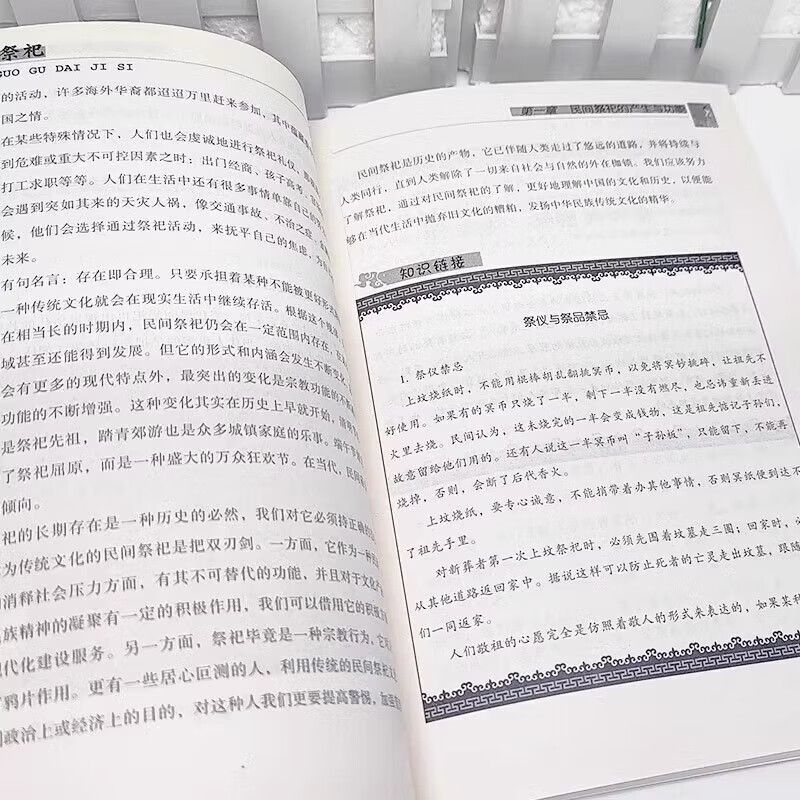 祭祀
GUO GU DAI JI SI
的活动，许多海外华裔都迢迢万里赶来参加，其中蕴藏
国之情。
在某些特殊情况下，人们也会虔诚地进行祭祀礼仪，
到危难或重大不可控因素之时：出门经商、孩子高考、
打工求职等等。人们在生活中还有很多事情单靠自己的
会遇到突如其来的天灾人祸，像交通事故、不治之症、
候，他们会选择通过祭祀活动，来抚平自己的焦虑，为
未来。
有句名言：存在即合理。只要承担着某种不能被更好
一种传统文化就会在现实生活中继续存活。根据这个
在相当长的时期内，民间祭祀仍会在一定范围内存在，
域甚至还能得到发展。但它的形式和内涵会发生不断变化
会有更多的现代特点外，最突出的变化是宗教功能的不断
功能的不断增强。这种变化其实在历史上早就开始，清明
是祭祀先祖，踏青郊游也是众多城镇家庭的乐事。端午
了祭祀屈原，而是一种盛大的万众狂欢节。在当代，民间
倾向。
祀的长期存在是一种历史的必然，我们对它必须持正确的
为传统文化的民间祭祀是把双刃剑。一方面，它作为一种
的消释社会压力方面，有其不可替代的功能，并且对于文化
民族精神的凝聚有一定的积极作用，我们可以借用它的积极
现代化建设服务。另一方面，祭祀毕竟是一种宗教行为，它
鸦片作用。更有一些居心叵测的人，利用传统的民间祭祀
到政治上或经济上的目的，对这种人我们更要提高警惕，加强
第一章 民间祭祀的产生与功能
民间祭祀是历史的产物，它已伴随人类走过了悠远的道路，并将持续与
人类同行，直到人类解除了一切来自社会与自然的外在枷锁。我们应该努力
了解祭祀，通过对民间祭祀的了解，更好地理解中国的文化和历史，以便能
够在当代生活中抛弃旧文化的糟粕，发扬中华民族传统文化的精华。
知识链接
祭仪与祭品禁忌
1. 祭仪禁忌
上坟烧纸时，不能用棍棒胡乱翻挑冥币，以免将冥钞挑碎，让祖先不
好使用。如果有的冥币只烧了一半，剩下一半没有燃尽，也忌讳重新丢进
火里去烧。民间认为，这未烧完的一半会变成钱物，这是祖先惦记子孙们，
故意留给他们用的。还有人说这一半冥币叫“子孙板”，只能留下，不能再
烧掉，否则，会断了后代香火。
上坟烧纸，要专心诚意，不能捎带着办其他事情，否则冥纸便到达不
了祖先手里。
对新葬者第一次上坟祭祀时，必须先围着坟墓走三圈；回家时，必
从其他道路返回家中。据说这样可以防止死者的亡灵走出坟墓，跟随
们一同返家。
人们敬祖的心愿完全是仿照着敬人的形式来表达的，如果某